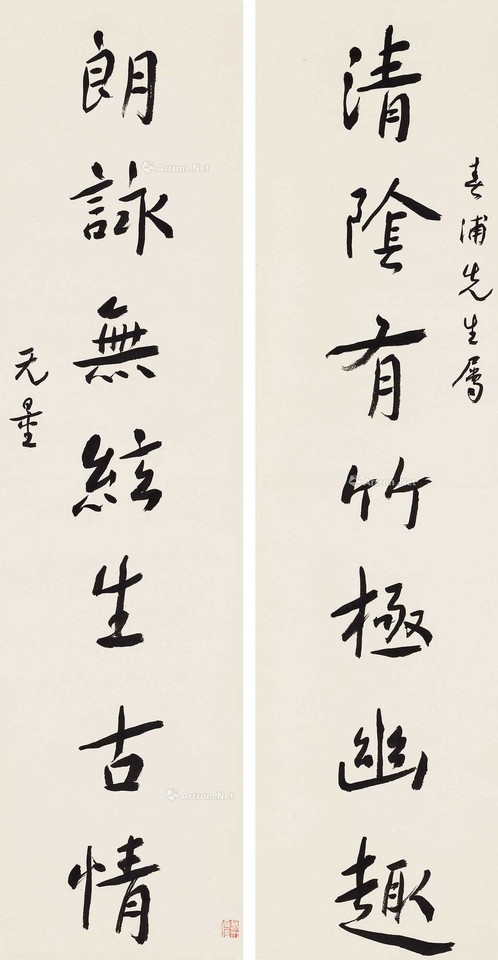 春浦先生屬
清陰有竹極幽趣
朗詠無絃生古情
无量
Artron.Net
Artron.Net
Artron.Net
Artron.Net